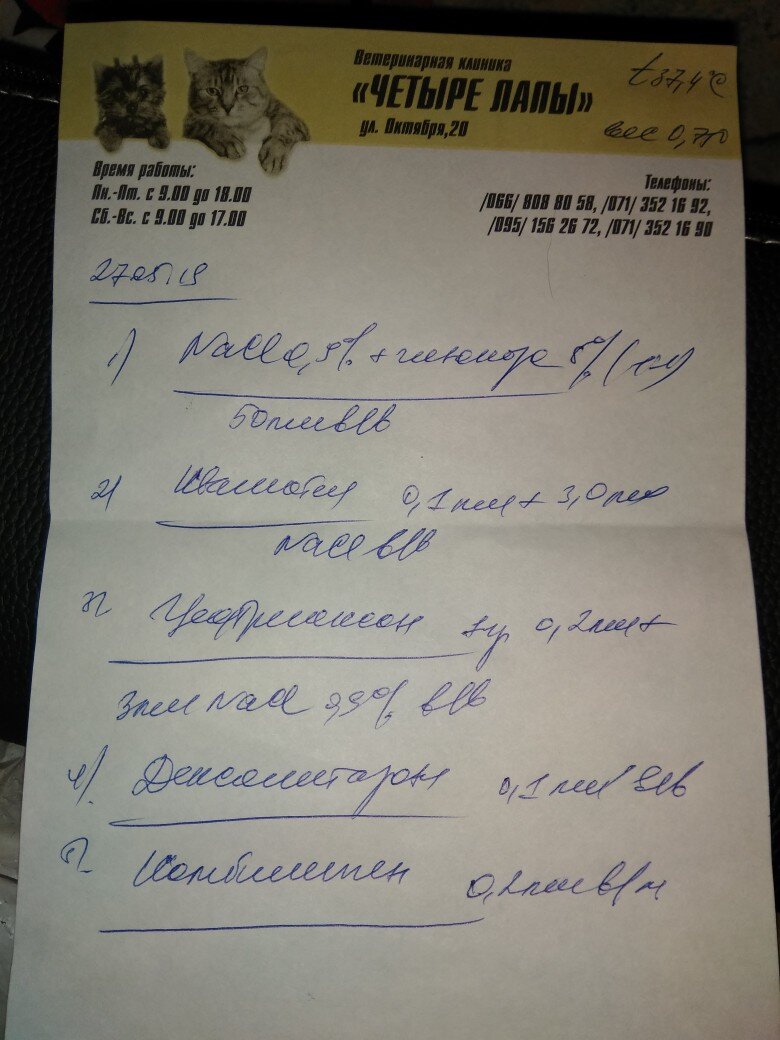 Ветеринарная клиника
«ЧЕТЫРЕ ЛАПЫ»
ул. Октября,20
t 37,4°C
вес 0,750
Время работы:
Пн.-Пт. с 9.00 до 18.00
Сб.-Вс. с 9.00 до 17.00
Телефоны:
/066/ 808 80 58, /071/ 352 16 92,
/095/ 156 26 72, /071/ 352 16 90
27.05.19
1) NaCl 0,9% + глюкоза 5% (1:1)
50 мл в/в
2) Квамател 0,1 мл + 3,0 мл
NaCl в/в
3) Цефтриаксон 1 гр 0,2 мл +
3 мл NaCl 0,9% в/в
4) Дексаметазон 0,1 мл в/в
5) 0,2 мл в/м